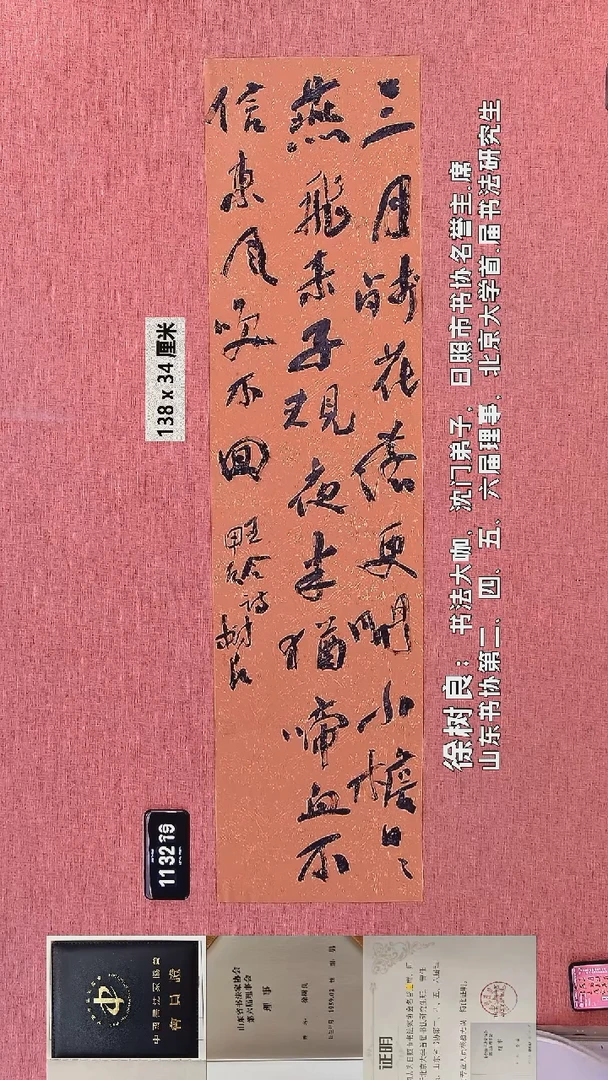 三月残花落更開小檐日々
燕飛来子規夜半猶啼血不
信東風吹不回
诗树良
138 x 34 厘米
徐树良：书法大咖，沈门弟子，日照市书协名誉主.席
山东书协第二、四、五、六届理事，北京大学首.届书法研究生
11 32 19
中國書法家協會
會員證
山东省书法家协会
第六届理事会
理事
证明